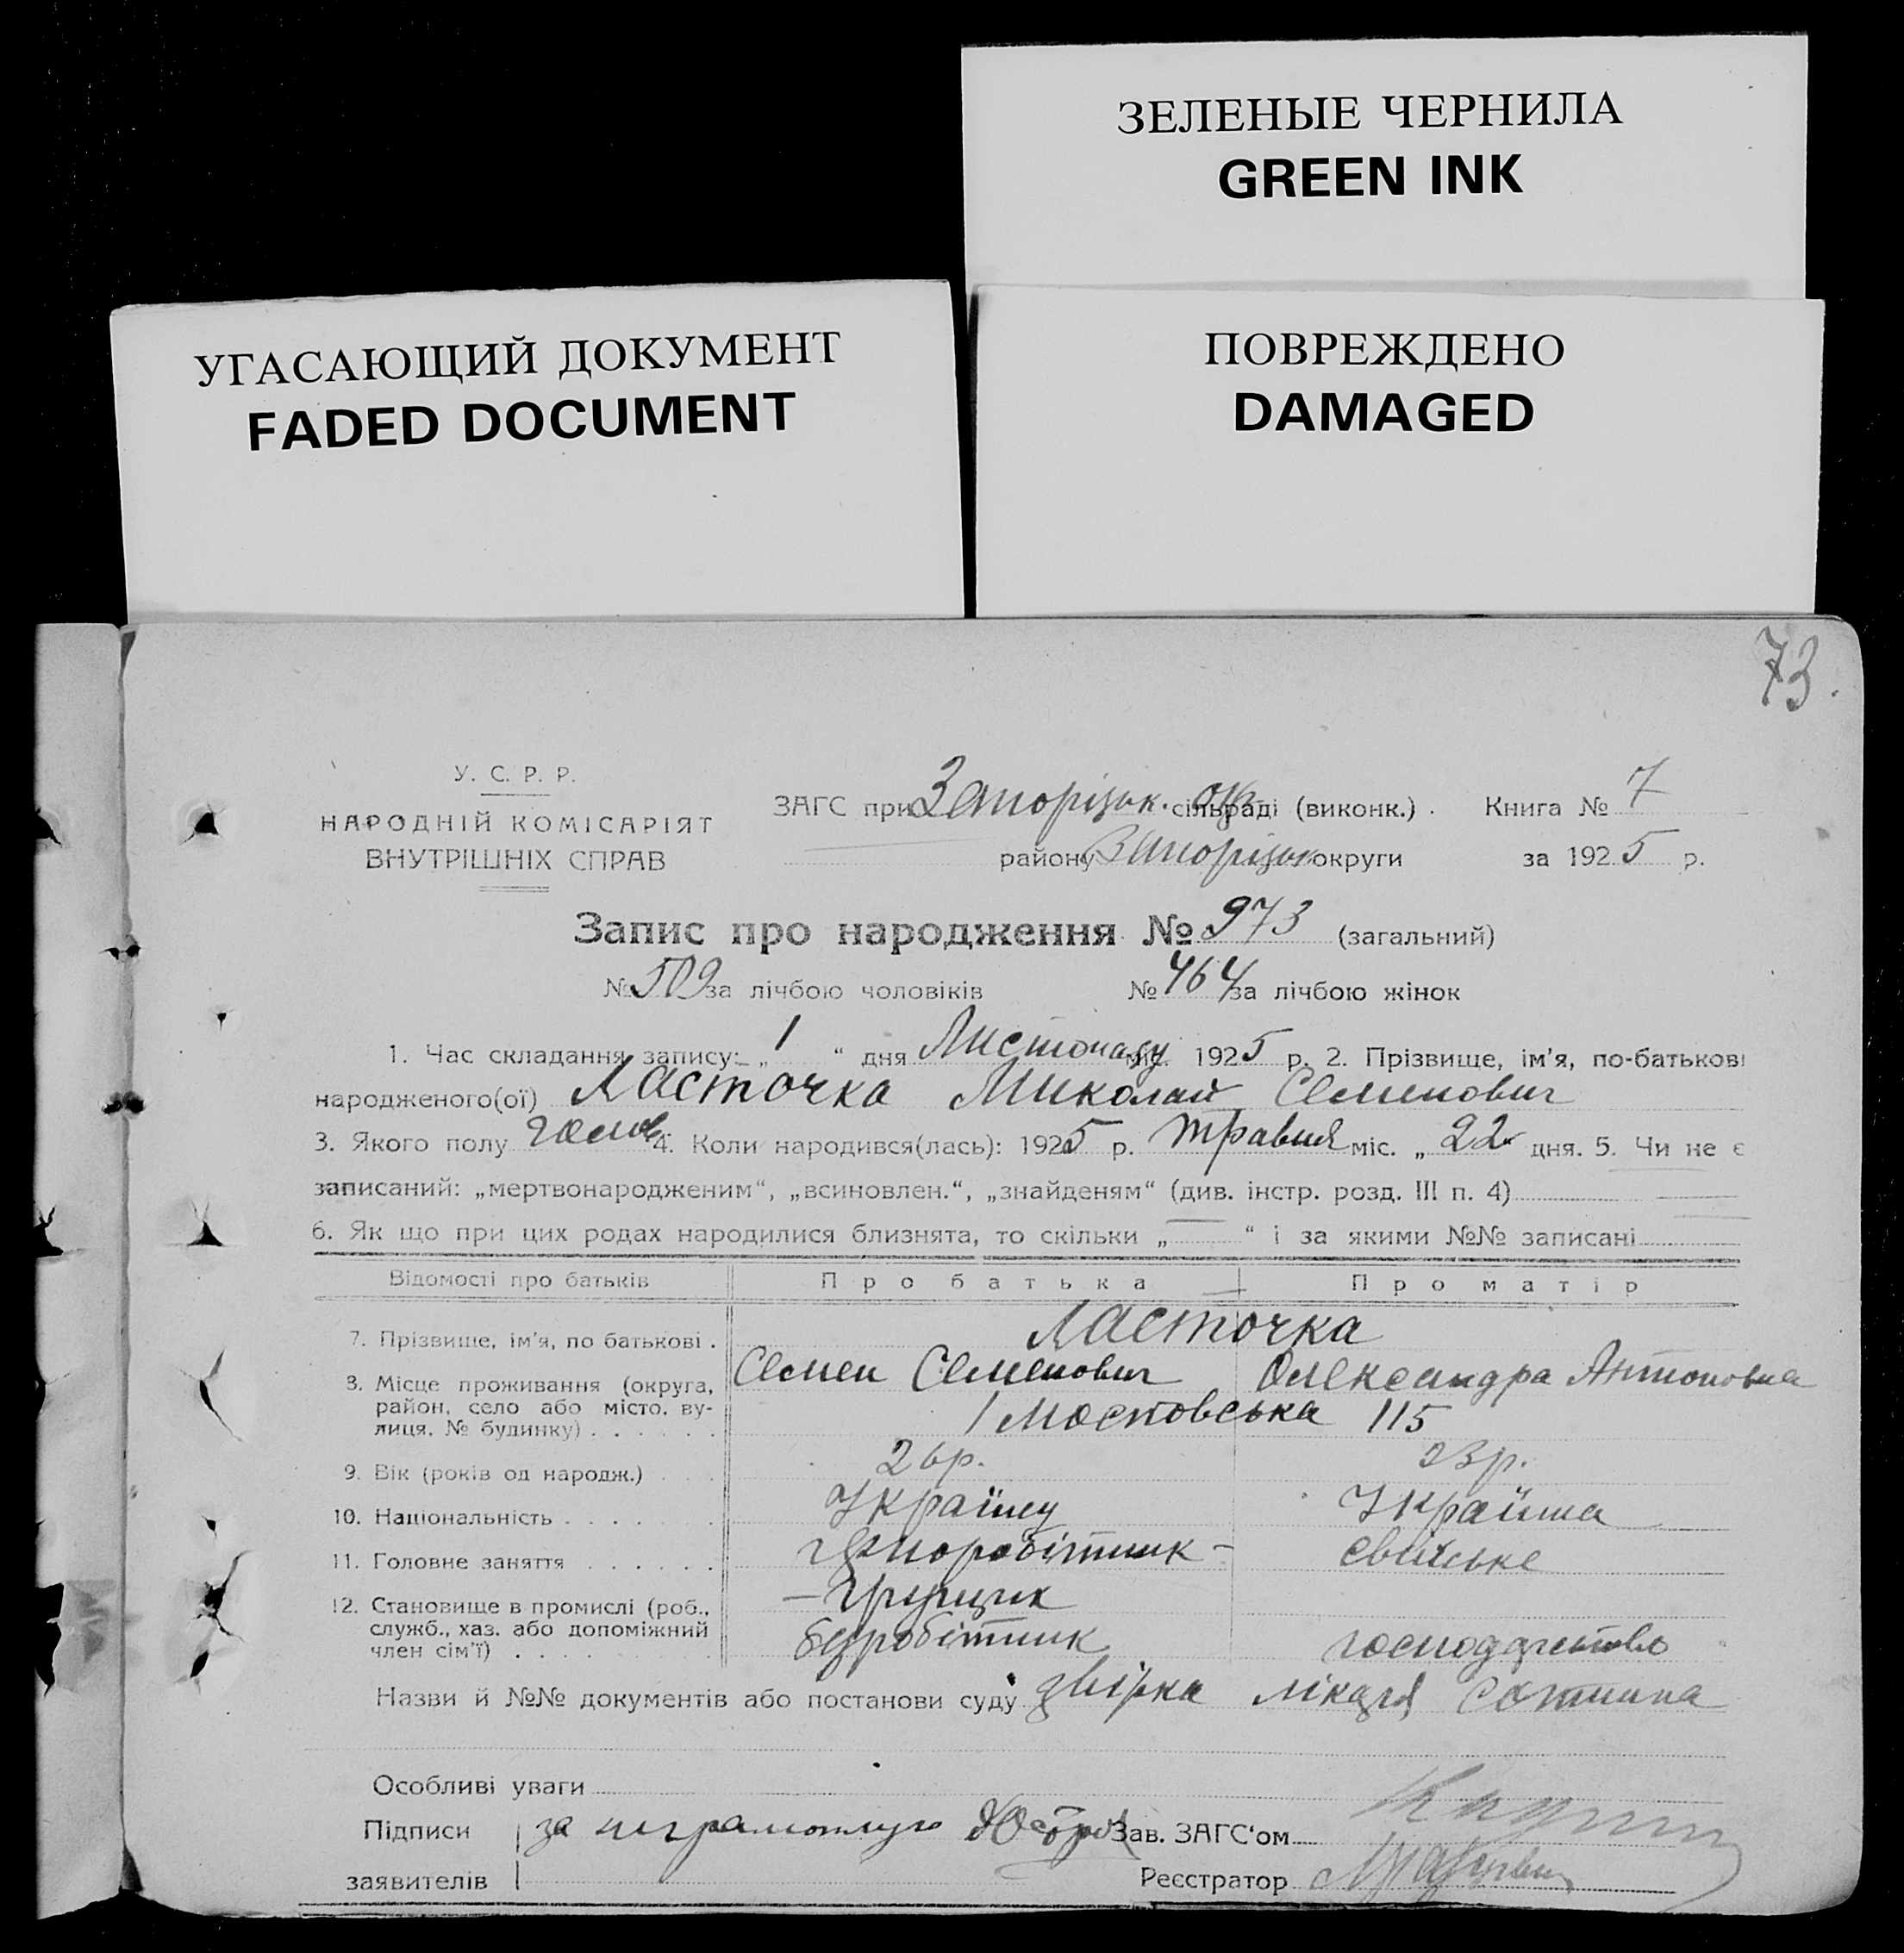 ЗЕЛЕНЫЕ ЧЕРНИЛА
GREEN INK
УГАСАЮЩИЙ ДОКУМЕНТ
FADED DOCUMENT
ПОВРЕЖДЕНО
DAMAGED
73.
У. С. Р. Р.
НАРОДНІЙ КОМІСАРІЯТ
ВНУТРІШНІХ СПРАВ
ЗАГС при Запорізьк. окр сільраді (виконк.) . Книга № 7
району Запорізьк округи за 1925 р.
Запис про народження № 973 (загальний)
№ 509 за лічбою чоловіків № 464 за лічбою жінок
1. Час складання запису: „ 1 “ дня Листопаду міс. 1925 р. 2. Прізвище, ім'я, по-батькові
народженого(ої) Ласточка Миколай Семенович
3. Якого полу чолов. 4. Коли народився(лась): 1925 р. Травня міс. „ 22 “ дня. 5. Чи не є
записаний: „мертвонародженим“, „всиновлен.“, „знайденям“ (див. інстр. розд. III п. 4)
6. Як що при цих родах народилися близнята, то скільки „ — “ і за якими №№ записані
Відомості про батьків Про батька Про матір
7. Прізвище, ім'я, по батькові . Ласточка
Семен Семенович Олександра Антоновна
8. Місце проживання (округа,
район, село або місто, ву-
лиця, № будинку) . . . . . . Мостовська 115
9. Вік (років од народж.) . . . 26р. 23р.
10. Національність . . . . . . Україн Україн
11. Головне заняття . . . . . . чорноробітник - свійське
— грущик
12. Становище в промислі (роб.,
служб., хаз. або допоміжний
член сім'ї) . . . . безробітник господарство
Назви й №№ документів або постанови суду лікаря
Особливі уваги
Підписи за неграмотную Зав. ЗАГС'ом
заявителів Реєстратор